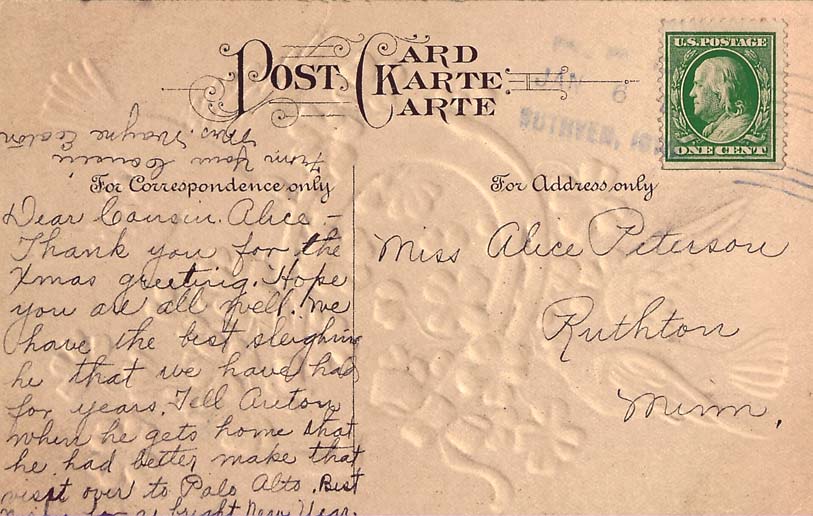 POST CARD
KARTE
CARTE
U.S. POSTAGE
ONE CENT
JAN 6
RUTHVEN, IOWA
For Correspondence only
For Address only
Dear Cousin Alice –
Thank you for the
Xmas greeting. Hope
you are all well. We
have the best sleighing
he that we have had
for years. Tell Anton
when he gets home that
he had better make that
visit over to Palo Alto. Best
bright New Year.
From Your Cousin
Mrs. Wayne
Miss Alice Peterson
Ruthton
Minn.